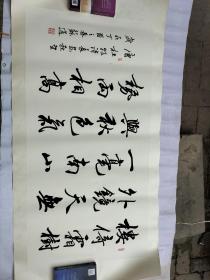 樓倚霜樹
外鏡天無
一毫南山
與秋色氣
勢兩相高
唐杜牧詩長安秋望